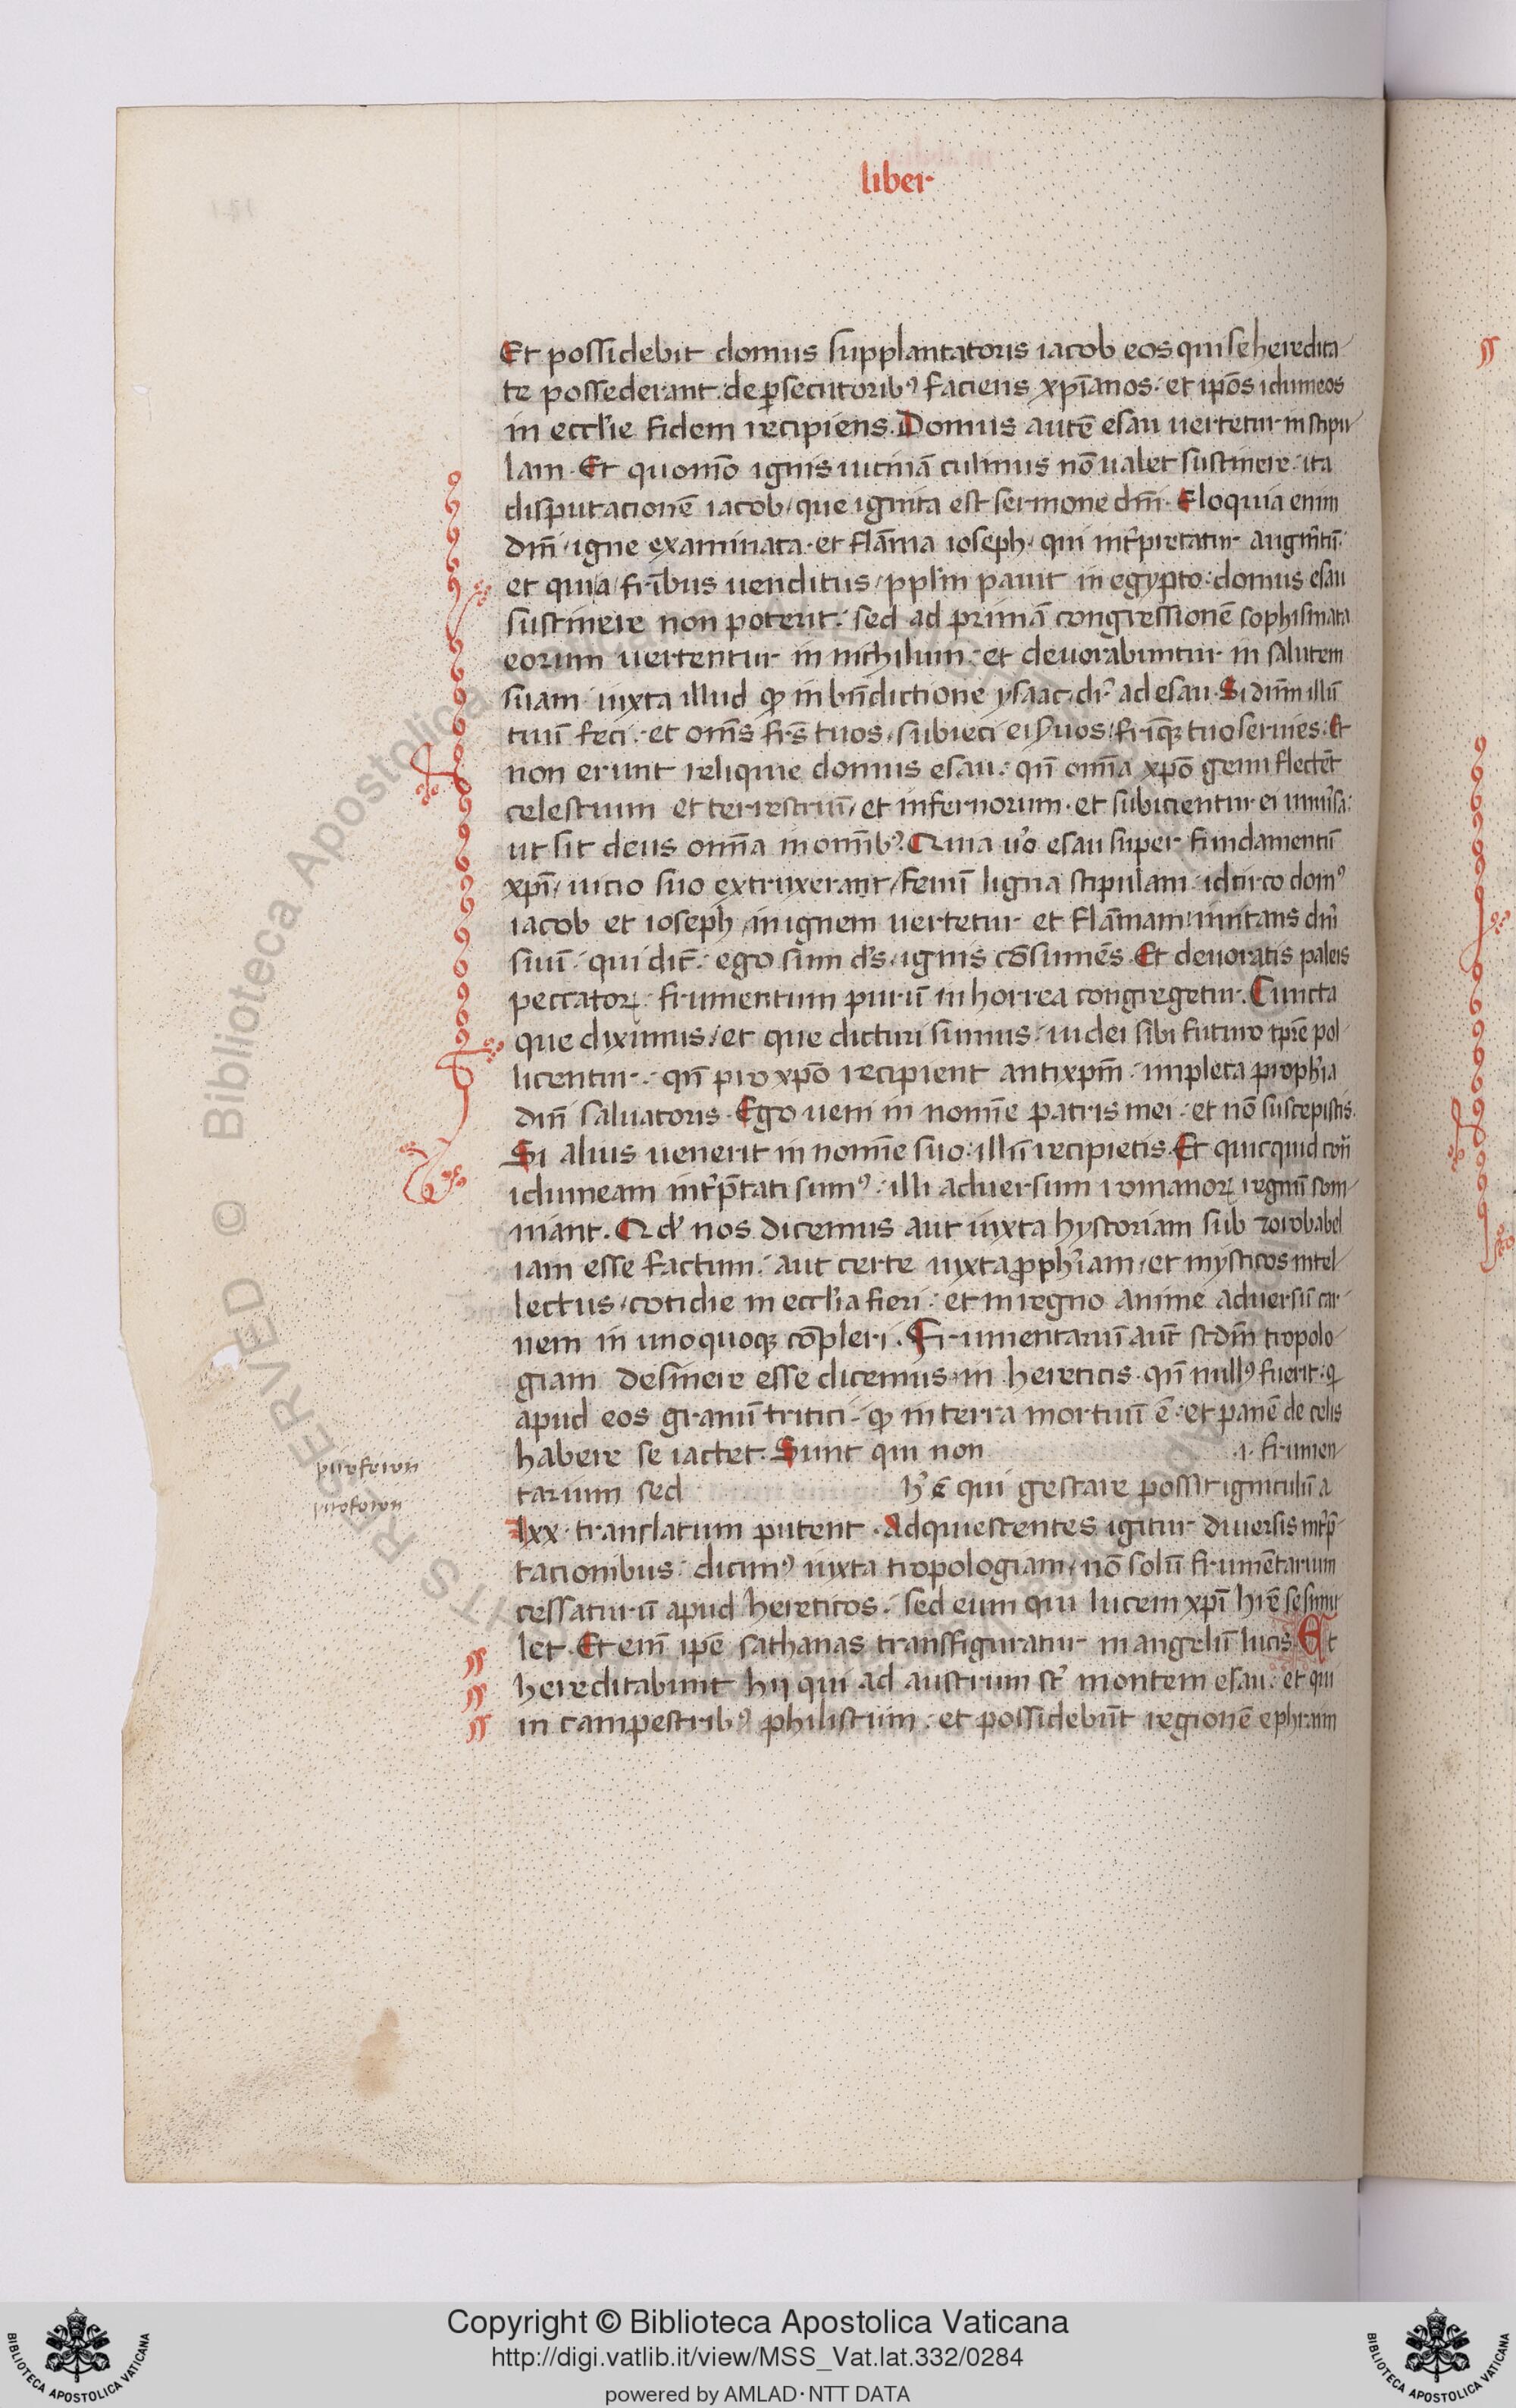 liber
Et possidebit domus supplantatoris iacob eos qui se heredita-
te possederant. de ꝑsecutoribꝰ faciens xp̄ianos. et ip̄os idumeos
in eccl'ie fidem recipiens. Domus autē esau uertetur in stipu-
lam. Et quom̄o ignis uicinā culmus nō ualet sustinere. ita
disputacionē iacob, que ignita est sermone dn̄i. Eloquia enim
dn̄i, igne examinata. et flāma ioseph, qui int̄pretatur augm̄tū.
et quia fr̄ibus uenditus, ppl'm pauit in egypto. domus esau
sustinere non poterit. sed ad primā congressionē sophismata
eorum uertentur in nichilum. et deuorabuntur in salutem
suam. iuxta illud qd in bn̄dictione ysaac, dr̄ ad esau. Si dn̄m illū
tuū feci. et om̄s fr̄s tuos, subieci ei seruos, fr̄iq; tuo seruies. Et
non erunt reliquie domus esau. qn̄ omīa xp̄o genu flectēt
celestium et terrestriū, et infernorum. et subicientur ei uniu'sa.
ut sit deus omīa in omībꝰ. Quia u'o esau super fundamentū
xp̄i, uicio suo extruxerant, fenū ligna stipulam. idcirco domꝰ
iacob et ioseph, in ignem uertetur et flāmam, imitans dn̄m
suū. qui dic̄. ego sum d's, ignis cōsumēs. Et deuoratis paleis
peccatoꝝ. frumentum purū in horrea congregetur. Cuncta
que diximus, et que dicturi sumus. iudei sibi futuro tp̄re pol-
licentur. qn̄ pro xp̄o recipient antixp̄m. impleta proph'ia
dn̄i saluatoris. Ego ueni in nomīe patris mei. et nō suscepistis.
Si alius uenerit in nomīe suo. illū recipietis. Et quicquid con̄
idumeam int̄p̄tati sumꝰ. illi aduersum romanoꝝ regnū som-
niant. Qd' nos dicemus aut iuxta hystoriam sub zorobabel
iam esse factum. aut certe iuxta ꝓph'iam, et mysticos intel-
lectus, cotidie in eccl'ia fieri. et in regno anime aduersū car-
nem in unoquoq; cōpleri. Frumentariū aut̄ scdm̄ tropolo-
giam desinere esse dicemus, in hereticis. qn̄ nullꝰ fuerit. q
apud eos granū tritici. qd in terra mortuū ē. et panē de celis
habere se iactet. Sunt qui non .i. frumen-
tarium sed h' ē qui gestare possit igniculū a
lxx. translatum putent. Adquiescentes igitur diuersis int̄p̄-
tacionibus. dicimꝰ iuxta tropologiam, nō solū frumētarium
cessaturū apud hereticos. sed eum qui lucem xp̄i h're se simu-
let. Et enī ip̄e sathanas transfiguratur in angelū lucis. Et
hereditabunt hij qui ad austrum st̄ montem esau. et qui
in campestribꝰ philistiim. et possidebūt regionē ephraim
Copyright © Biblioteca Apostolica Vaticana
http://digi.vatlib.it/view/MSS_Vat.lat.332/0284
powered by AMLAD·NTT DATA